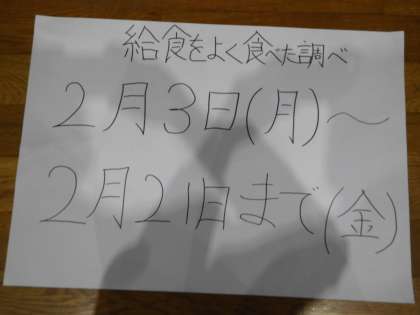 給食をよく食べた調べ
2月3日(月)～
2月21日まで(金)